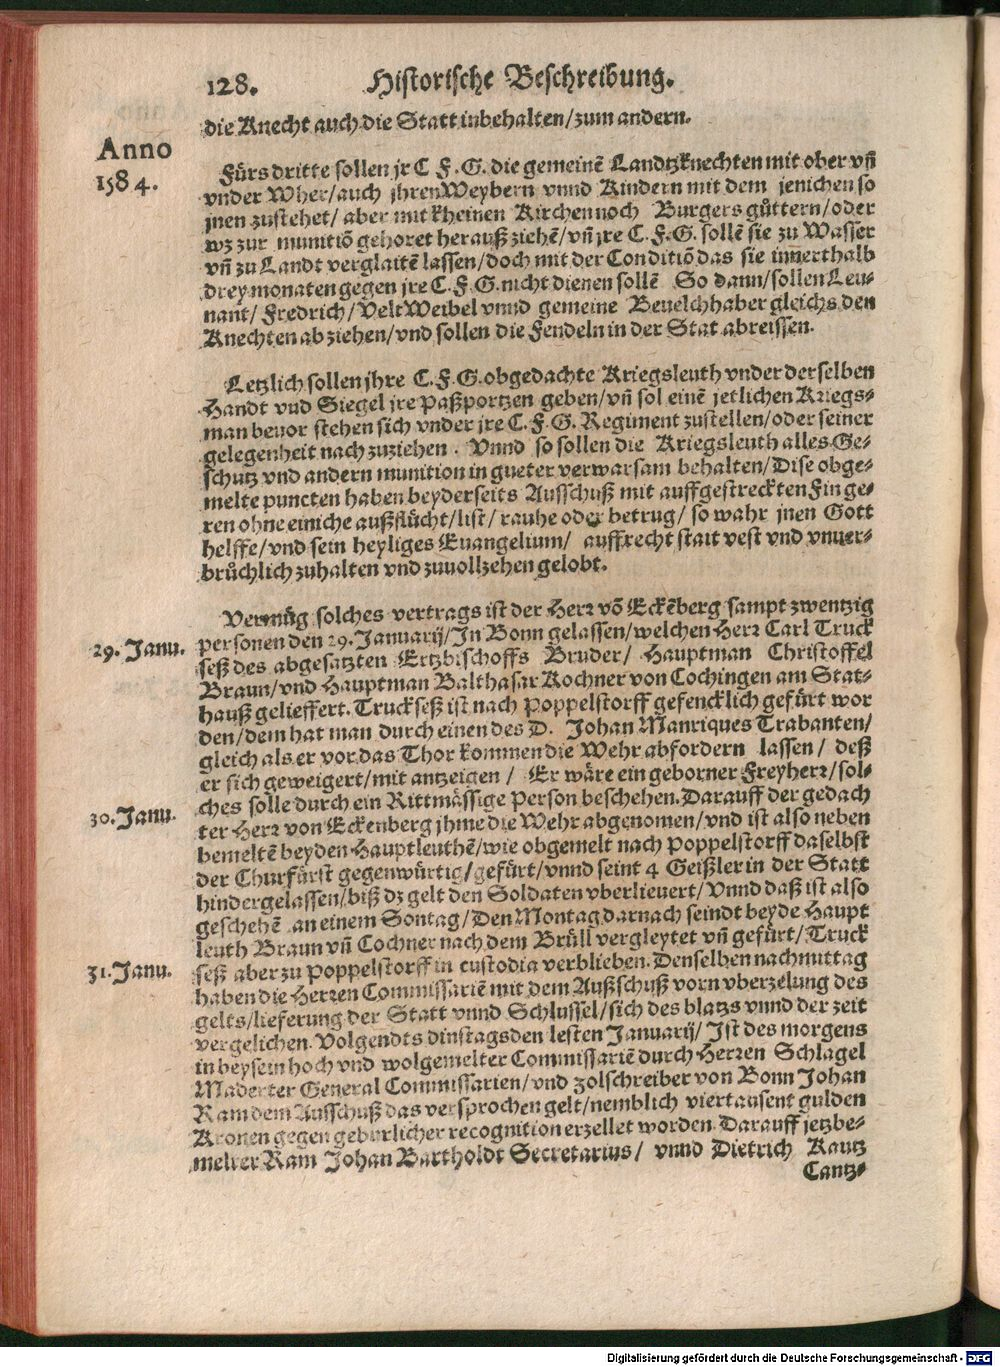 128. Historische Beschreibung.
die Knecht auch die Statt inbehalten/zum andern.
Anno
1584.
Fürs dritte sollen jr C F.G. die gemeinẽ Landtzknechten mit ober vñ
vnder Wher/auch jhren Weybern vnnd Kindern mit dem jenichen so
jnen zustehet/ aber mit kheinen Kirchen noch Burgers gůttern/oder
wz zur munitiõ gehoret herauß ziehẽ/vñ jre C.F.G. sollẽ sie zu Wasser
vñ zu Landt verglaitẽ lassen/doch mit der Conditiõ das sie innerthalb
drey monaten gegen jre C.F.G. nicht dienen sollẽ So dann/sollen Leu-
nant/ Fredrich/Velt Weibel vnnd gemeine Beuelchhaber gleichs den
Knechten abziehen/vnd sollen die Fendeln in der Stat abreissen.
Letzlich sollen jhre C.F.G. obgedachte Kriegsleuth vnder derselben
Handt vnd Siegel jre Paßportzen geben/vñ sol einẽ jetlichen Kriegs-
man beuor stehen sich vnder jre C.F.G. Regiment zustellen/oder seiner
gelegenheit nach zuziehen. Vnnd so sollen die Kriegsleuth alles Ge-
schutz vnd andern munition in gueter verwarsam behalten/Dise obge-
melte puncten haben beyderseits Ausschuß mit auffgestreckten Finge-
ren ohne einiche außflücht/list/ rauhe oder betrug/ so wahr jnen Gott
helffe/vnd sein heyliges Euangelium/ auffrecht statt vest vnd vnuer-
brůchlich zuhalten vnd zuuollzehen gelobt.
Vermüg solches vertrags ist der Herr võ Eckẽberg sampt zwentzig
29. Janu. personen den 29. Januarij/In Bonn gelassen/welchen Herr Carl Truck
seß des abgesatzten Ertzbischoffs Bruder/ Hauptman Christoffel
Braun/vnd Hauptman Balthasar Kochner von Cochingen am Stat-
hauß gelieffert. Truckseß ist nach Poppelstorff gefencklich gefürt wor
den/dem hat man durch einen des D. Johan Manriques Trabanten/
gleich als er vor das Thor kommen die Wehr abfordern lassen/ deß
er sich geweigert/mit antzeigen/ Er wäre ein geborner Freyherr/sol-
30. Janu. ches solle durch ein Rittmässige Person beschehen. Darauff der gedach
ter Herr von Eckenberg jhme die Wehr abgenomen/vnd ist also neben
bemeltẽ beyden Hauptleuthẽ/wie obgemelt nach Poppelstorff daselbst
der Churfürst gegenwürtig/gefürt/vnnd seint 4 Geißler in der Statt
hindergelassen/biß dz gelt den Soldaten vberlieuert/Vnnd daß ist also
geschehẽ an einem Sontag/Den Montag darnach seindt beyde Haupt
leuth Braun vñ Cochner nach dem Brüll vergleytet vñ gefürt/Truck
31. Janu. seß aber zu Poppelstorff in custodia verblieben. Denselben nachmittag
haben die Herren Commissariẽ mit dem Außschuß vorn vberzelung des
gelts/lieferung der Statt vnnd Schlussel/sich des blatzs vnnd der zeit
vergelichen. Volgendts dinstags den lesten Januarij/ Ist des morgens
in beysein hoch vnd wolgemelter Commissariẽ durch Herren Schlagel
Maderter General Commissarien/vnd Zolschreiber von Bonn Johan
Ram dem Ausschuß das versprochen gelt/nemblich viertausent gulden
Kronen gegen geburlicher recognition erzellet worden. Darauff jetzbe-
melter Ram Johan Bartholdt Secretarius/ vnnd Dietrich Kautz
Cantz-
Digitalisierung gefördert durch die Deutsche Forschungsgemeinschaft - DFG